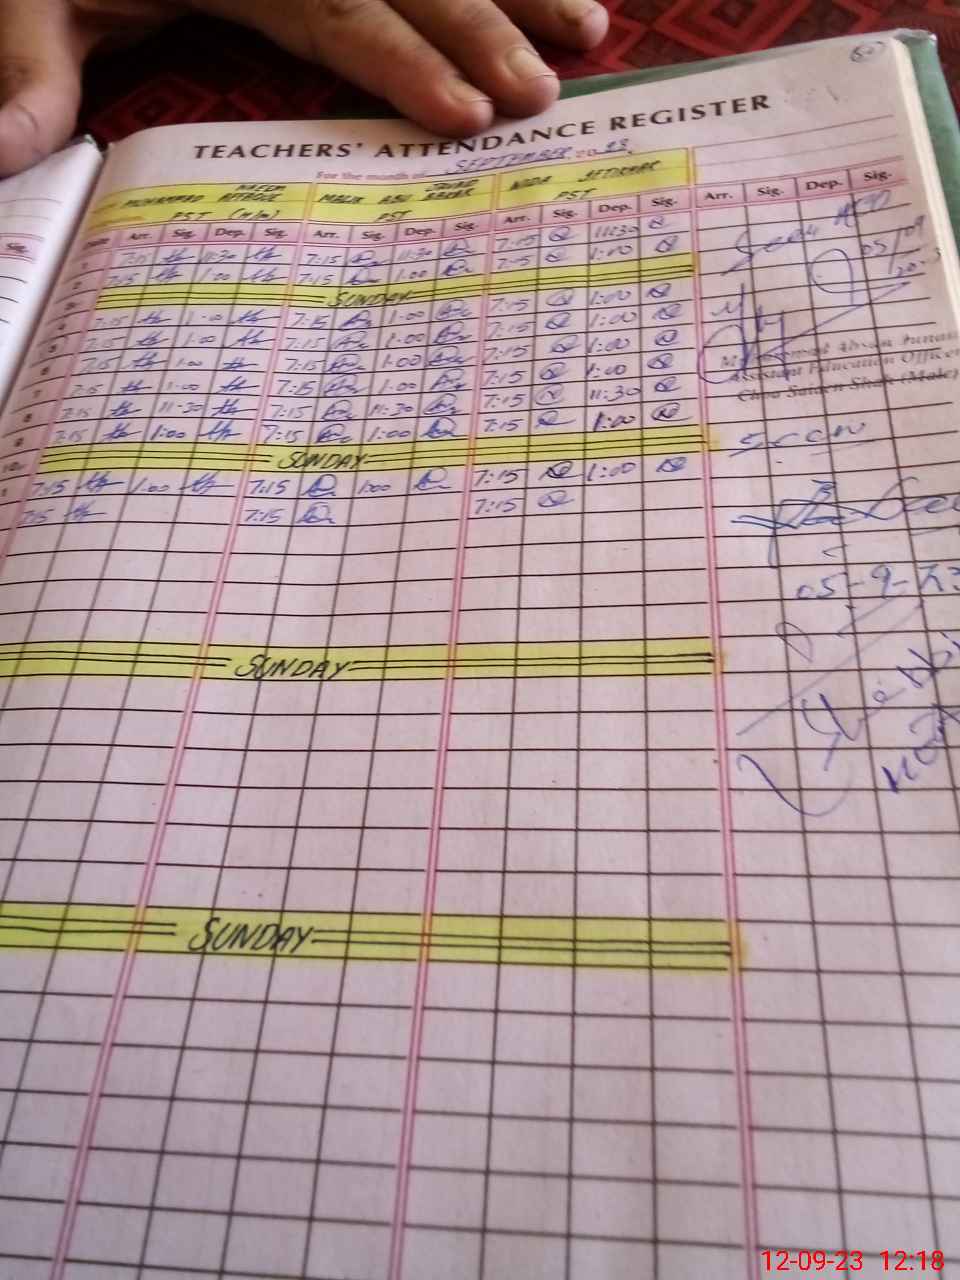 60
TEACHERS' ATTENDANCE REGISTER
For the month of SEPTEMBER 2023.
MUHAMMAD NAEEM MALIK ABU NIDA
PST (M/M) PST PST
Date Arr. Sig. Dep. Sig. Arr. Sig. Dep. Sig. Arr. Sig. Dep. Sig. Arr. Sig. Dep. Sig.
1 7:15 11:30 7:15 11:30 7:15 11:30
2 7:15 1:00 7:15 1:00 7:15 1:00
3 SUNDAY
4 7:15 1:00 7:15 1:00 7:15 1:00
5 7:15 1:00 7:15 1:00 7:15 1:00
6 7:15 1:00 7:15 1:00 7:15 1:00
7 7:15 1:00 7:15 1:00 7:15 1:00
8 7:15 11:30 7:15 11:30 7:15 11:30
9 7:15 1:00 7:15 1:00 7:15 1:00
10 SUNDAY
7:15 1:00 7:15 1:00 7:15 1:00
7:15 7:15 7:15
SUNDAY
SUNDAY
Sig.
Seen
05/09
Assistant Education Officer
Choa Saiden Shah (Male)
Seen
05-9-23
12-09-23 12:18